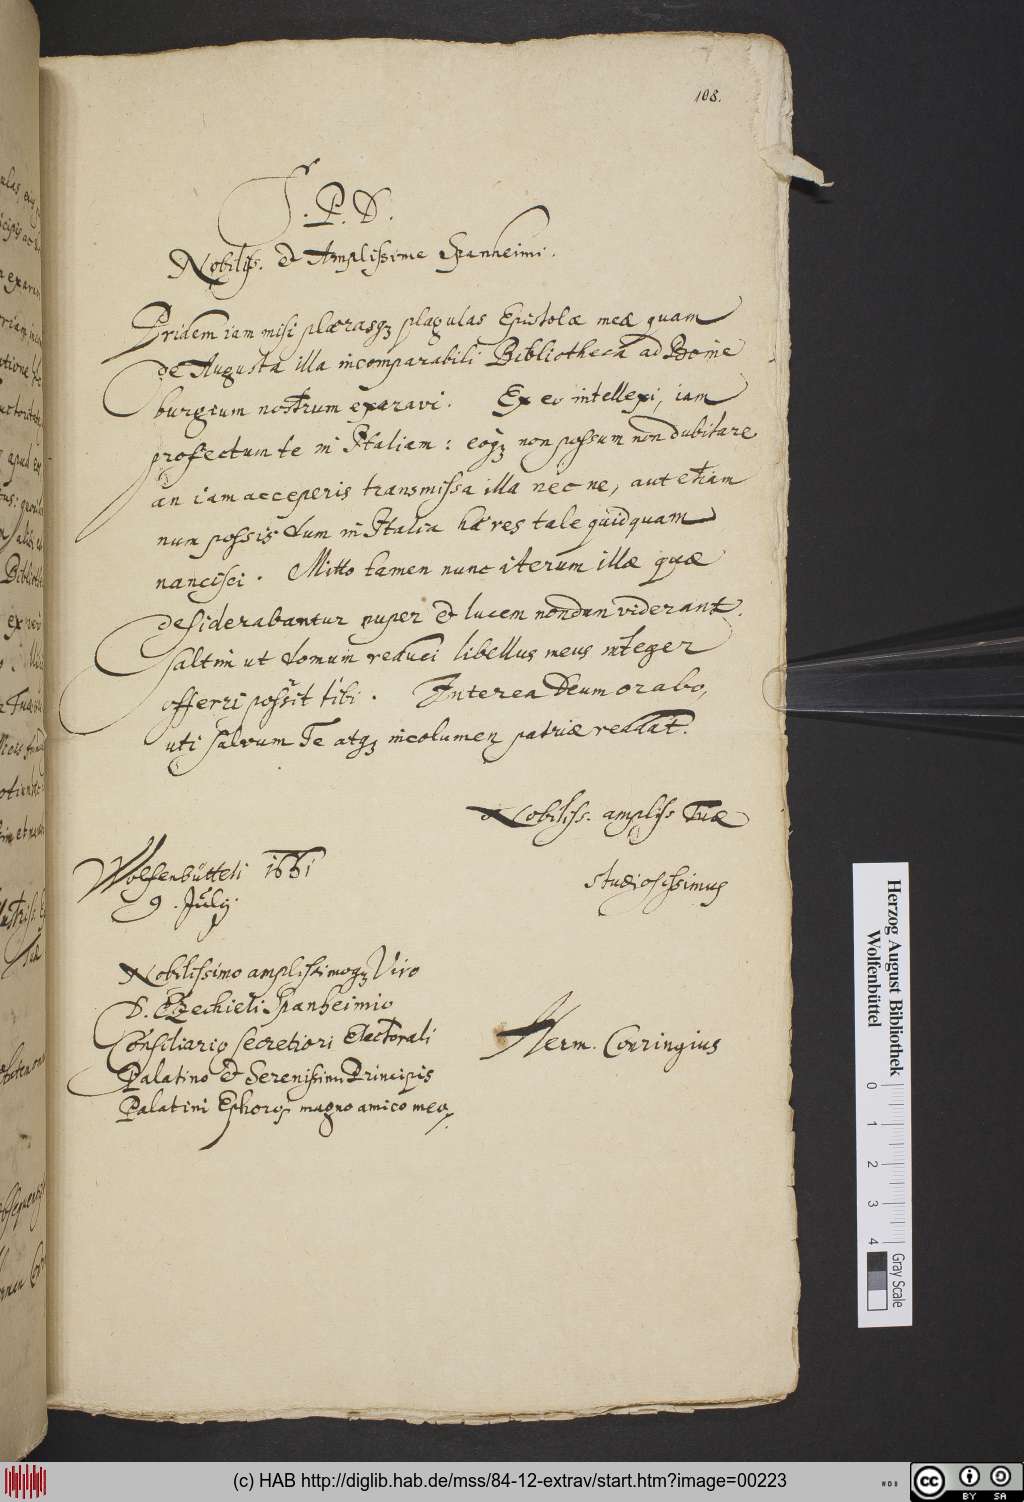 108.
S. P. D.
Nobiliss. et Amplissime Spanheimi.
Pridem iam misi plærasq; plagulas Epistolæ meæ quam
de Augusta illa incomparabili Bibliotheca ad Boine
burgium nostrum exaravi. Ex eo intellexi, iam
profectum te in Italiam: eoq; non possum non dubitare
an iam acceperis transmissa illa nec ne, aut etiam
num possis dum in Italia hæres tale quidquam
nancisci. Mitto tamen nunc iterum illæ quæ
desiderabantur nuper et lucem nondum viderant.
saltim ut domum reduci libellus meus integer
offerri possit tibi. Interea Deum orabo,
uti salvum Te atq; incolumen patriæ reddat.
Nobiliss. ampliss Tuæ
Wolfenbütteli 1661
9. July.
studiosissimus
Nobilissimo amplissimoq; Viro
D. Ezechieli Spanheimio
Consiliario secretiori Electorali
Palatino et Serenissimi Principis
Palatini Ephoro, magno amico meo.
Herm. Conringius
Herzog August Bibliothek
Wolfenbüttel
0 1 2 3 4
Gray Scale
(c) HAB http://diglib.hab.de/mss/84-12-extrav/start.htm?image=00223
cc BY SA